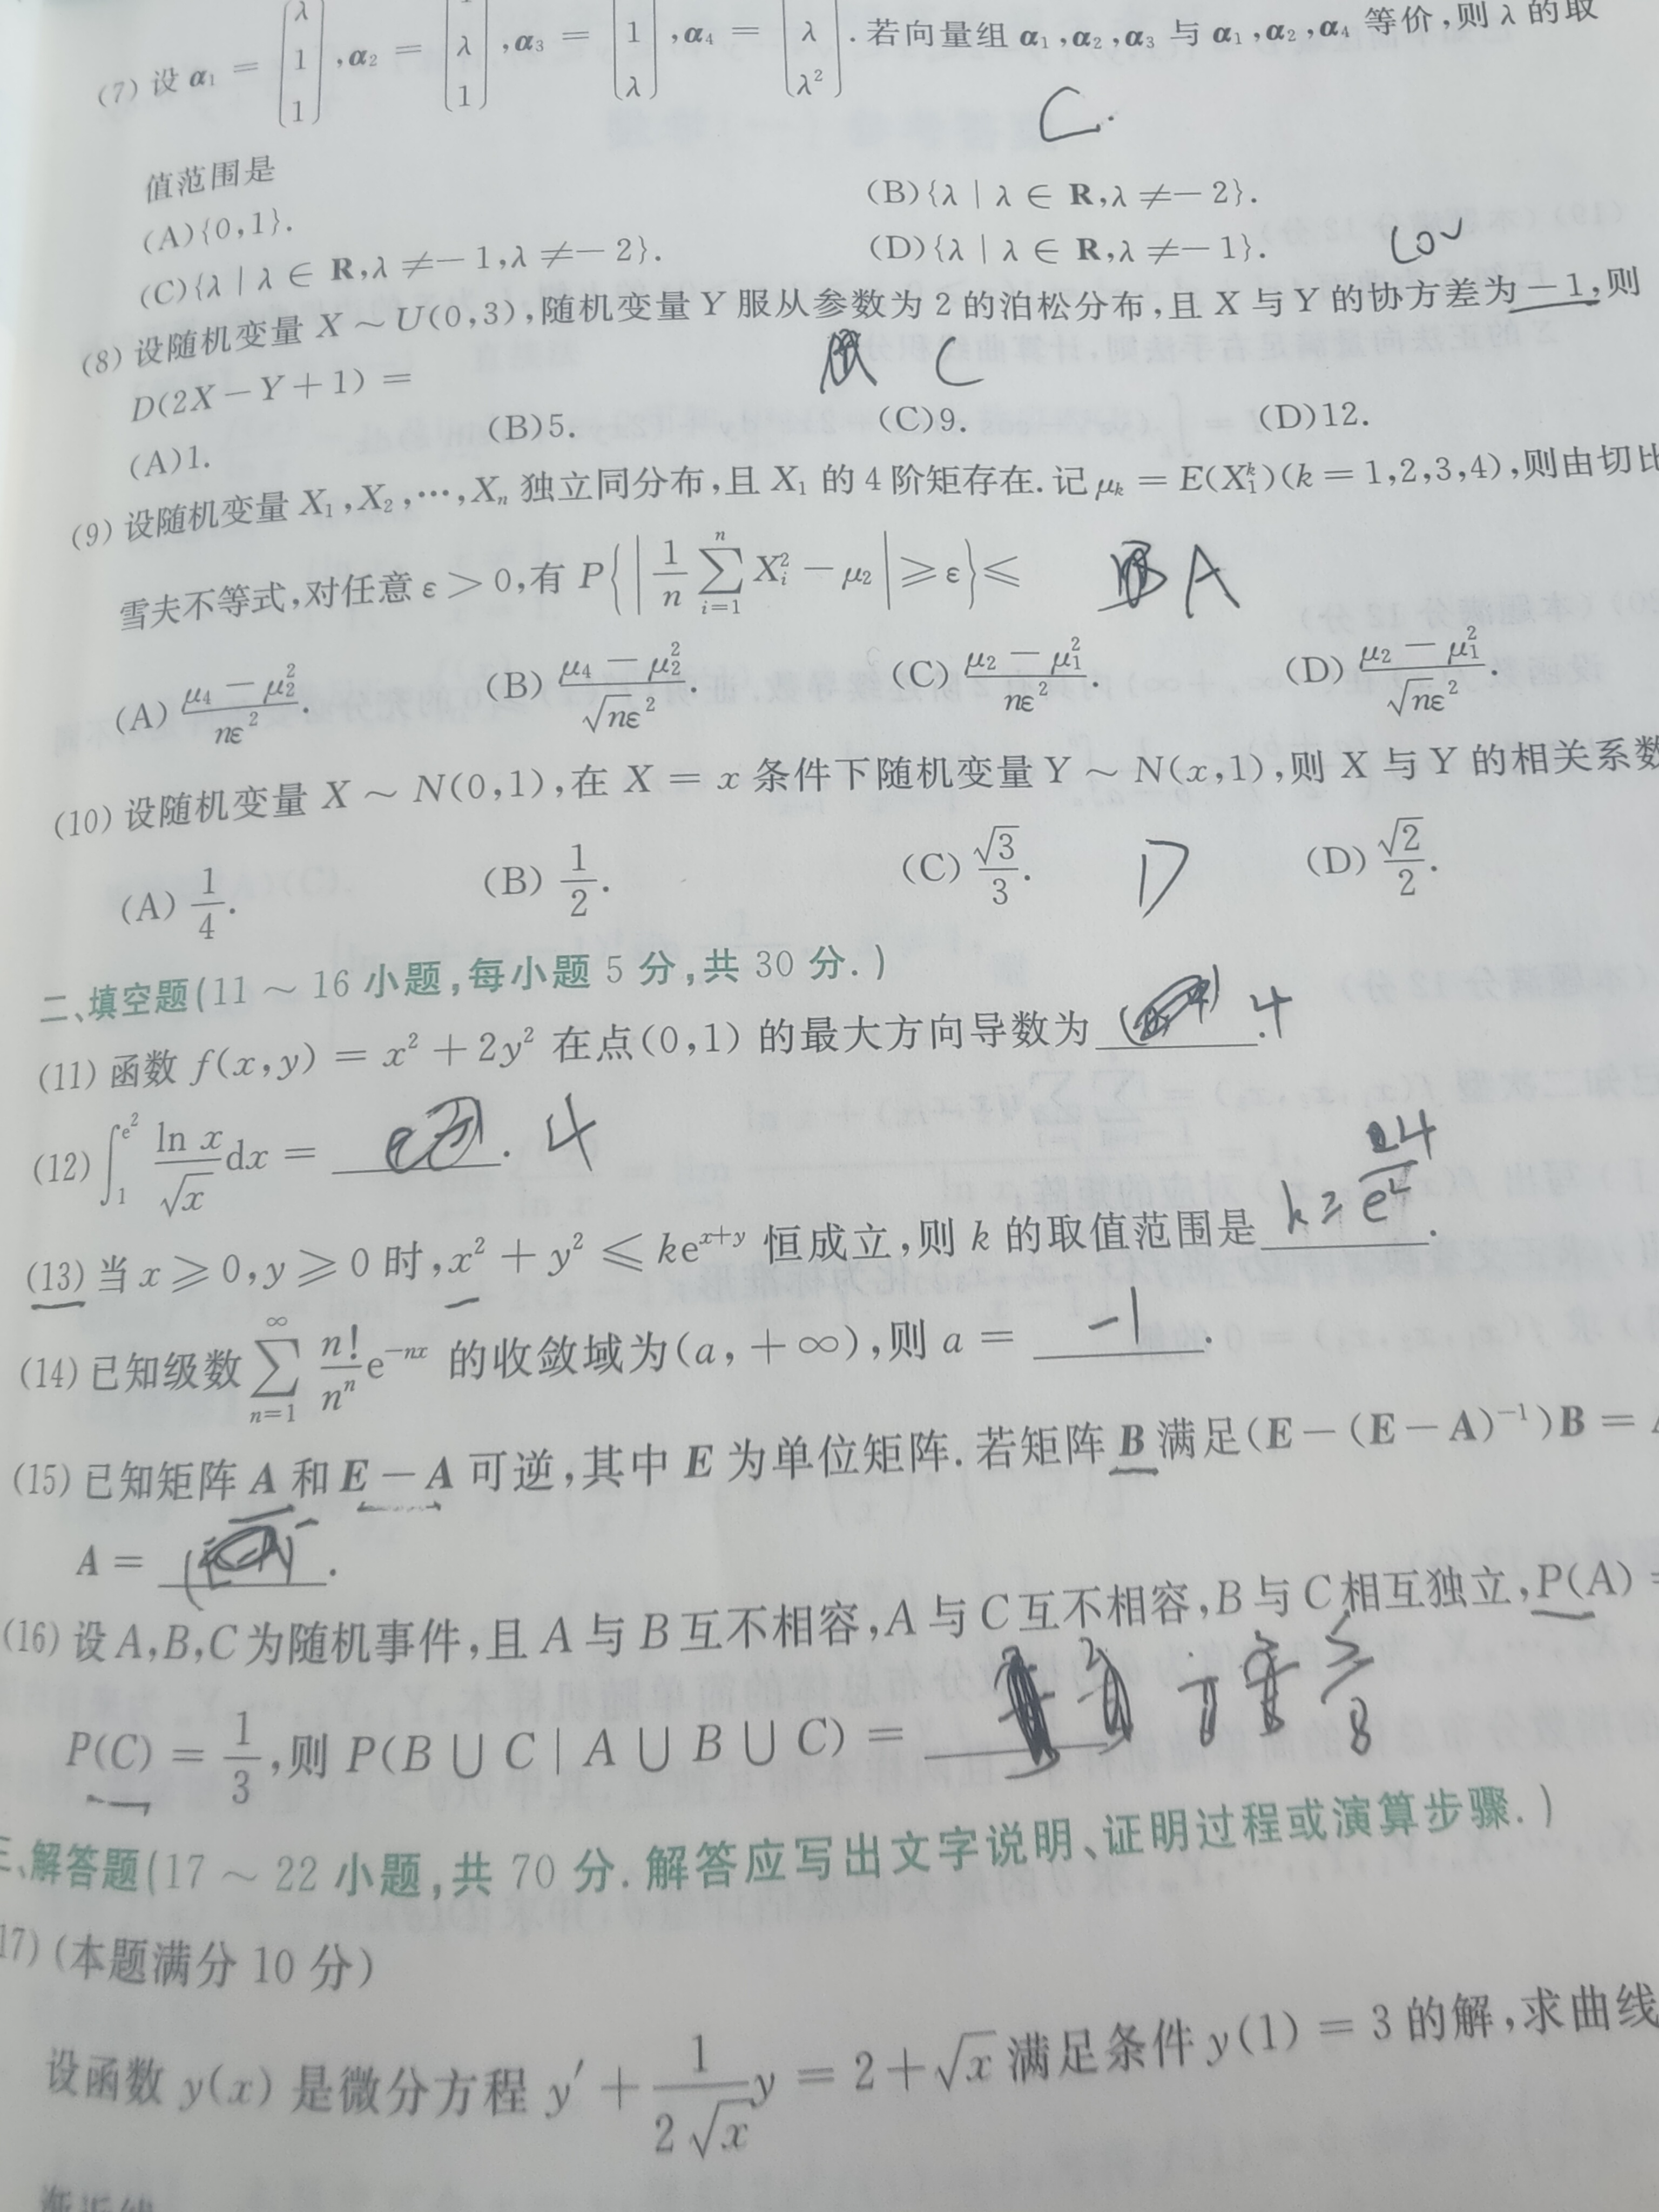 (7) 设 α₁ = (λ 1 1), α₂ = (1 λ 1), α₃ = (1 1 λ), α₄ = (1 λ λ²). 若向量组 α₁,α₂,α₃ 与 α₁,α₂,α₄ 等价,则 λ 的取
C.
值范围是
(A){0,1}. (B){λ | λ ∈ R,λ ≠ − 2}.
(C){λ | λ ∈ R,λ ≠ − 1,λ ≠ − 2}. (D){λ | λ ∈ R,λ ≠ − 1}.
cov
(8) 设随机变量 X ~ U(0,3),随机变量 Y 服从参数为 2 的泊松分布,且 X 与 Y 的协方差为 − 1,则
D(2X − Y + 1) = C
(A)1. (B)5. (C)9. (D)12.
(9) 设随机变量 X₁,X₂,⋯,Xₙ 独立同分布,且 X₁ 的 4 阶矩存在. 记 μₖ = E(X₁ᵏ)(k = 1,2,3,4),则由切比
雪夫不等式,对任意 ε > 0,有 P{|1/n ∑ᵢ₌₁ⁿ Xᵢ² − μ₂| ⩾ ε} ⩽ A
(A) (μ₄ − μ₂²)/(nε²). (B) (μ₄ − μ₂²)/(√nε²). (C) (μ₂ − μ₁²)/(nε²). (D) (μ₂ − μ₁²)/(√nε²).
(10) 设随机变量 X ~ N(0,1),在 X = x 条件下随机变量 Y ~ N(x,1),则 X 与 Y 的相关系数
(A) 1/4. (B) 1/2. (C) √3/3. D (D) √2/2.
二、填空题(11 ~ 16 小题,每小题 5 分,共 30 分.)
(11) 函数 f(x,y) = x² + 2y² 在点(0,1) 的最大方向导数为 ______. 4
(12) ∫₁^(e²) (ln x)/√x dx = ______. 4
(13) 当 x ⩾ 0,y ⩾ 0 时,x² + y² ⩽ keˣ⁺ʸ 恒成立,则 k 的取值范围是 k ≥ 4/e².
(14) 已知级数 ∑ₙ₌₁^∞ (n!/nⁿ) e⁻ⁿˣ 的收敛域为(a, + ∞),则 a = −1.
(15) 已知矩阵 A 和 E − A 可逆,其中 E 为单位矩阵. 若矩阵 B 满足(E − (E − A)⁻¹)B = A
A = ______.
(16) 设 A,B,C 为随机事件,且 A 与 B 互不相容,A 与 C 互不相容,B 与 C 相互独立,P(A) =
P(C) = 1/3,则 P(B ∪ C | A ∪ B ∪ C) = ______ 5/8
三、解答题(17 ~ 22 小题,共 70 分. 解答应写出文字说明、证明过程或演算步骤.)
17) (本题满分 10 分)
设函数 y(x) 是微分方程 y′ + 1/(2√x) y = 2 + √x 满足条件 y(1) = 3 的解,求曲线
渐近线